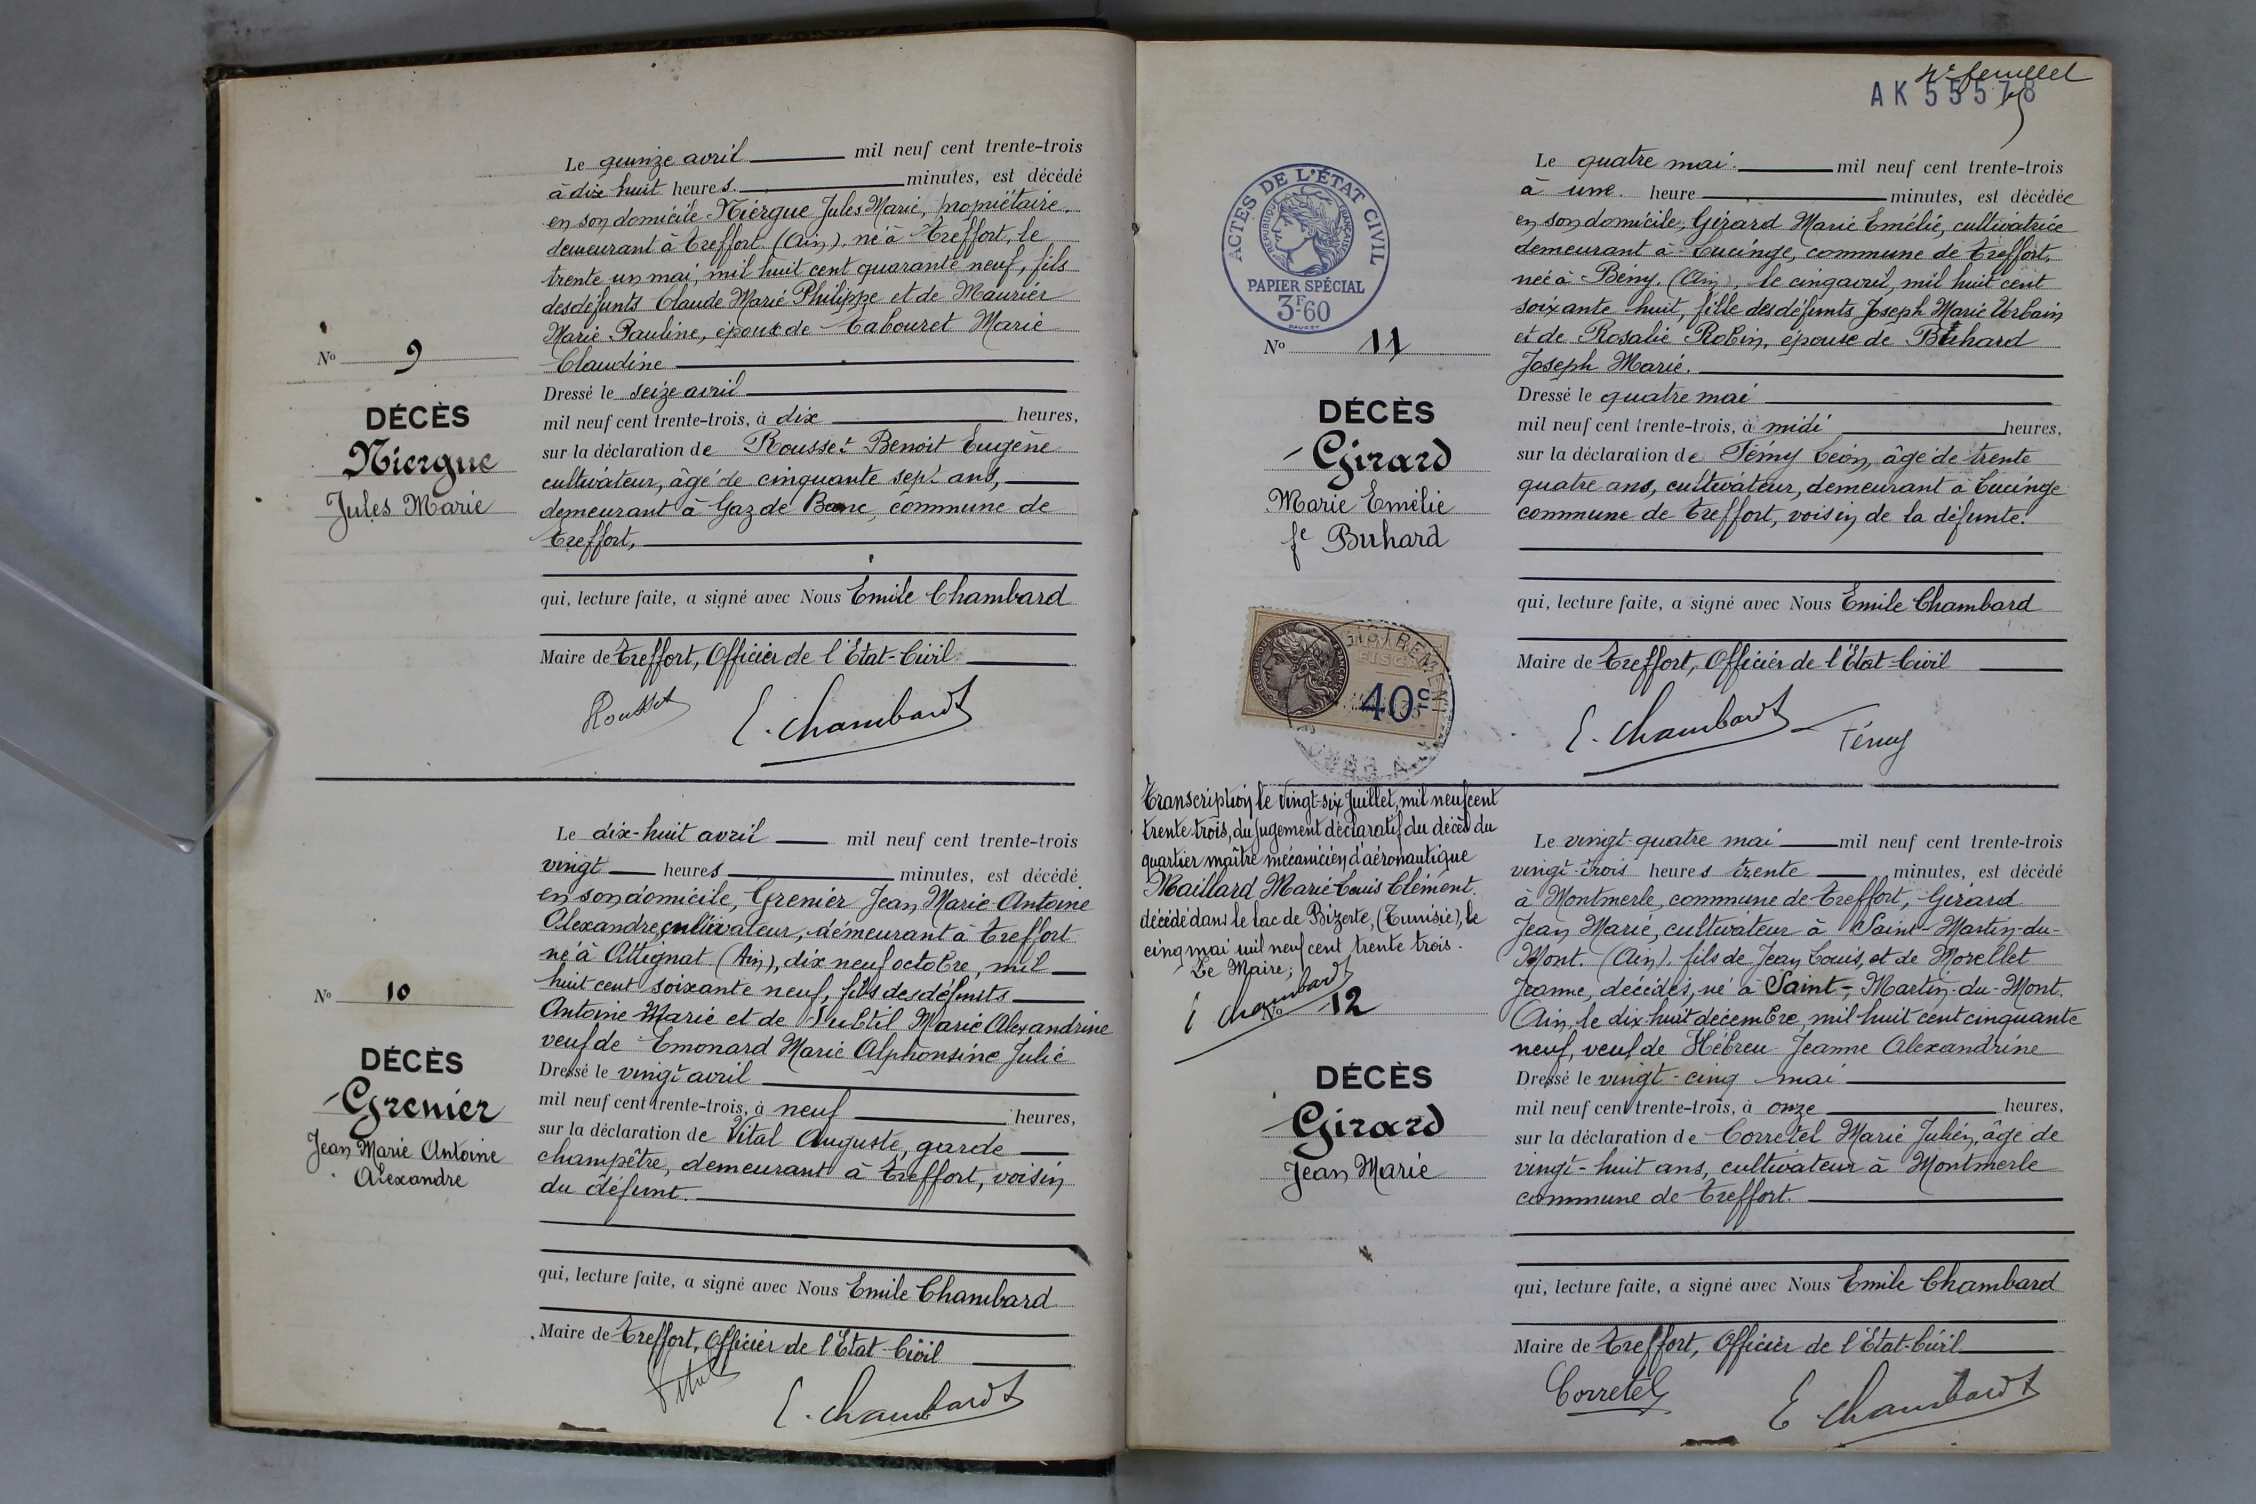 Le quinze avril mil neuf cent trente-trois
à dix huit heures. minutes, est décédé
en son domicile Niergue Jules Marie, propriétaire.
demeurant à Treffort (Ain) né à Treffort, le
trente un mai, mil huit cent quarante neuf, fils
des défunts Claude Marie Philippe et de Maurier
Marie Pauline, époux de Tabouret Marie
Claudine
No 9
DÉCÈS
Niergue
Jules Marie
Dressé le seize avril
mil neuf cent trente-trois, à dix heures,
sur la déclaration de Rousset Benoit Eugène
cultivateur, âgé de cinquante sept ans,
demeurant à Gaz de Banc, commune de
Treffort,
qui, lecture faite, a signé avec Nous Emile Chambard
Maire de Treffort, Officier de l'Etat-Civil
Rousset E. Chambard
Le dix-huit avril mil neuf cent trente-trois
vingt heures minutes, est décédé
en son domicile, Grenier Jean Marie Antoine
Alexandre, cultivateur, demeurant à Treffort
né à Attignat (Ain), dix neuf octobre, mil
huit cent soixante neuf, fils des défunts
Antoine Marie et de Subtil Marie Alexandrine
veuf de Emonard Marie Alphonsine Julie
No 10
DÉCÈS
Grenier
Jean Marie Antoine
Alexandre
Dressé le vingt avril
mil neuf cent trente-trois, à neuf heures,
sur la déclaration de Vital Auguste, garde
champêtre, demeurant à Treffort, voisin
du défunt.
qui, lecture faite, a signé avec Nous Emile Chambard
Maire de Treffort, Officier de l'Etat-Civil
Vital E. Chambard
4e feuillet
AK 55578
ACTES DE L'ÉTAT CIVIL
RÉPUBLIQUE FRANÇAISE
PAPIER SPÉCIAL
3F60
No 11
DÉCÈS
Girard
Marie Emélie
fe Buhard
Le quatre mai. mil neuf cent trente-trois
à une heure minutes, est décédée
en son domicile, Girard Marie Emélie, cultivatrice
demeurant à Cucinge, commune de Treffort,
née à Beny. (Ain), le cinq avril, mil huit cent
soixante huit, fille des défunts Joseph Marie Urbain
et de Rosalie Robin, épouse de Buhard
Joseph Marie.
Dressé le quatre mai
mil neuf cent trente-trois, à midi heures,
sur la déclaration de Fémy Léon, âgé de trente
quatre ans, cultivateur, demeurant à Cucinge
commune de Treffort, voisin de la défunte.
qui, lecture faite, a signé avec Nous Emile Chambard
Maire de Treffort, Officier de l'Etat-Civil
E. Chambard Fémy
40c
Transcription le vingt-six Juillet, mil neuf cent
trente trois, du jugement déclaratif du décès du
quartier maître mécanicien d'aéronautique
Maillard Marie Louis Clément.
décédé dans le lac de Bizerte, (Tunisie), le
cinq mai mil neuf cent trente trois.
Le Maire;
E Chambard
No 12
DÉCÈS
Girard
Jean Marie
Le vingt-quatre mai mil neuf cent trente-trois
vingt-trois heures trente minutes, est décédé
à Montmerle, commune de Treffort, Girard
Jean Marie, cultivateur à Saint-Martin-du-
Mont. (Ain). fils de Jean Louis, et de Morellet
Jeanne, décédés, né à Saint-Martin-du-Mont.
Ain, le dix-huit décembre, mil huit cent cinquante
neuf, veuf de Hébreu Jeanne Alexandrine
Dressé le vingt-cinq mai
mil neuf cent trente-trois, à onze heures,
sur la déclaration de Corretel Marie Julien, âgé de
vingt-huit ans, cultivateur à Montmerle
commune de Treffort.
qui, lecture faite, a signé avec Nous Emile Chambard
Maire de Treffort, Officier de l'Etat-Civil
Corretel E. Chambard